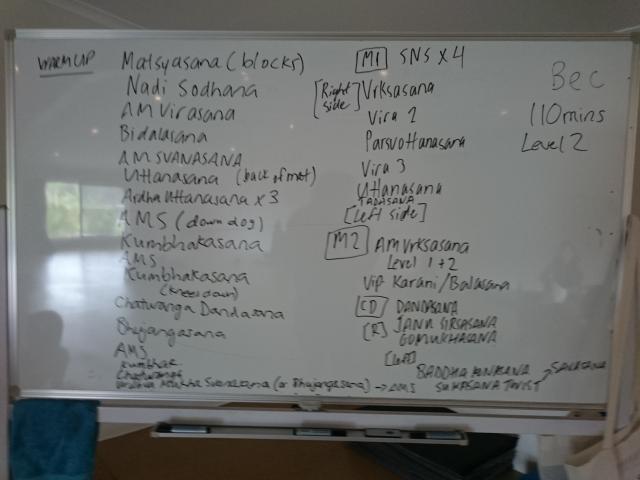 WARM UP
Matsyasana (blocks)
Nadi Sodhana
AM Virasana
Bidalasana
AM SVANASANA
Uttanasana (back of mat)
Ardha Uttanasana x 3
AMS (down dog)
Kumbhakasana
AMS
Kumbhakasana
(knees down)
Chaturanga Dandasana
Bhujangasana
AMS
Kumbhak
Chaturanga
Svanasana (or Bhujangasana) → AMS
M1 SNS x 4
[Right side] Vrksasana
Vira 2
Parsvottanasana
Vira 3
Uttanasana
TADASANA
[Left side]
M2 AM Vrksasana
Level 1 + 2
Vip Karani/Balasana
CD DANDASANA
[R] JANU SIRSASANA
GOMUKHASANA
[Left]
BADDHA KONASANA
SUKASANA TWIST → SAVASANA
Bec
110mins
Level 2